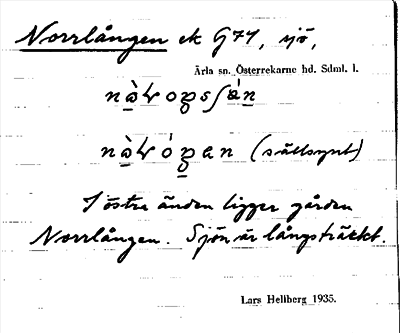 Norrlången ek G 74, sjö,
Ärla sn. Österrekarne hd. Sdml. l.
(sällsynt)
I östra änden ligger gården
Norrlången. Sjön är långsträckt.
Lars Hellberg 1935.